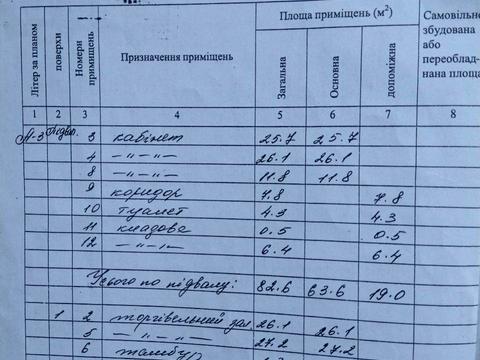 Літер за планом поверхи Номери приміщень Призначення приміщень Площа приміщень (м²) Самовільно
збудована
або
переоблад-
нана площа
Загальна Основна допоміжна
1 2 3 4 5 6 7 8
А-3 Підвал. 3 кабінет 25.7 25.7
4 —"—"— 26.1 26.1
8 —"—"— 11.8 11.8
9 коридор 7.8 7.8
10 туалет 4.3 4.3
11 кладова 0.5 0.5
12 —"—"— 6.4 6.4
Усього по підвалу: 82.6 63.6 19.0
1 2 торгівельний зал 26.1 26.1
5 —"—"— 27.2 27.2
6 тамбур